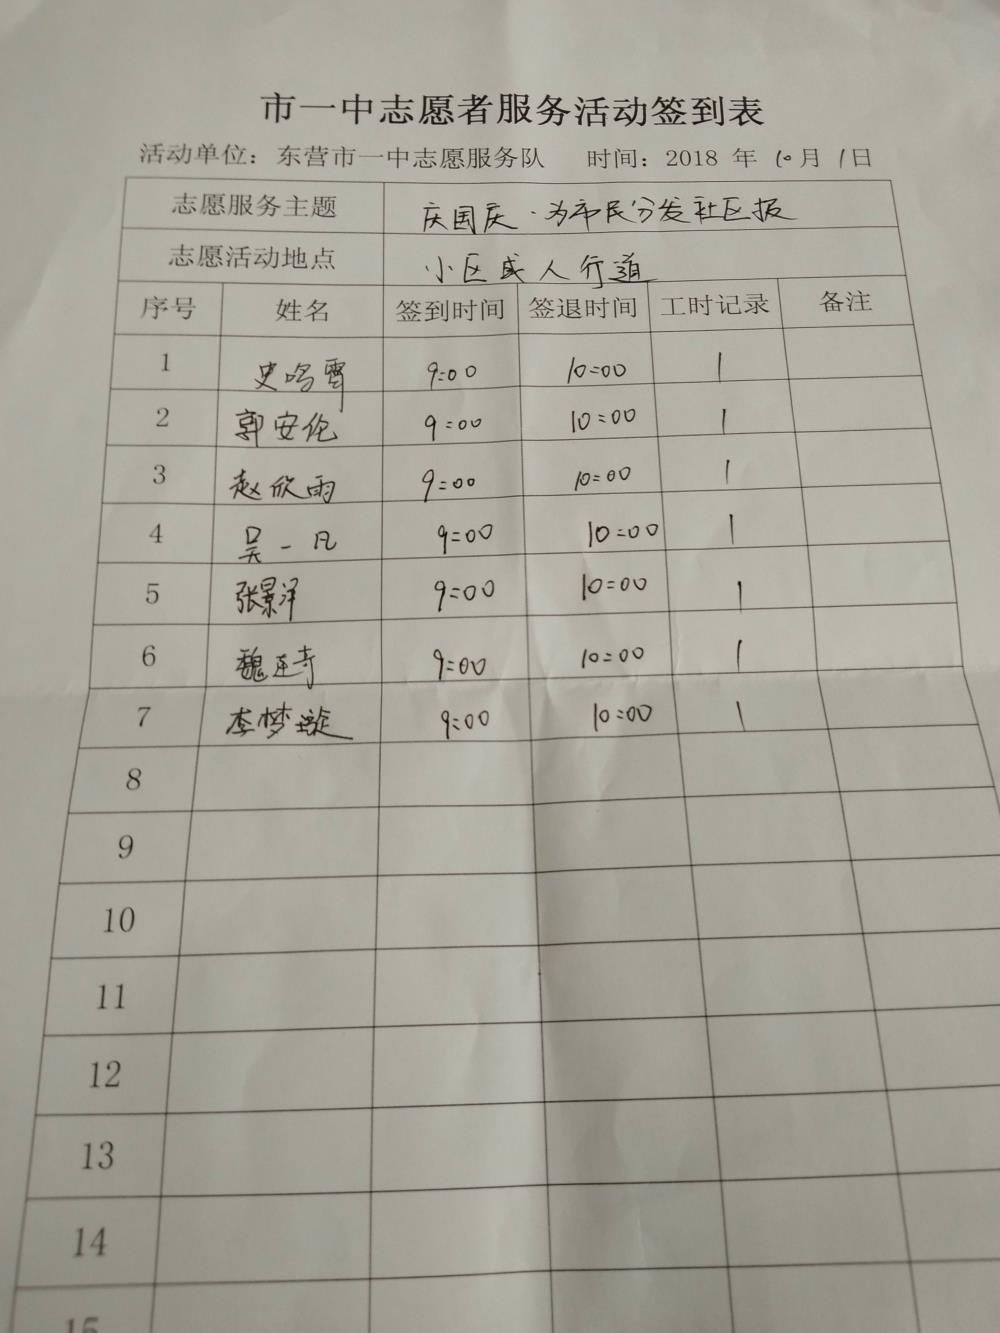 市一中志愿者服务活动签到表
活动单位：东营市一中志愿服务队 时间：2018 年 10月 1日
志愿服务主题 庆国庆·为市民分发社区报
志愿活动地点 小区或人行道
序号 姓名 签到时间 签退时间 工时记录 备注
1 史鸣霄 9:00 10:00 1
2 郭安伦 9:00 10:00 1
3 赵欣雨 9:00 10:00 1
4 吴一凡 9:00 10:00 1
5 张景洋 9:00 10:00 1
6 魏廷奇 9:00 10:00 1
7 李梦璇 9:00 10:00 1
8
9
10
11
12
13
14
15